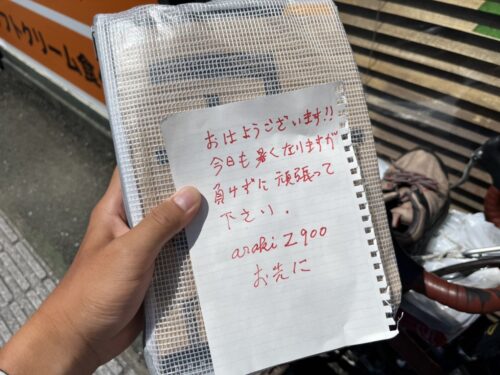 フトクリーム金
おはようございます!!
今日も暑くなりますが
負けずに頑張って
下さい。
araki Z900
お先に